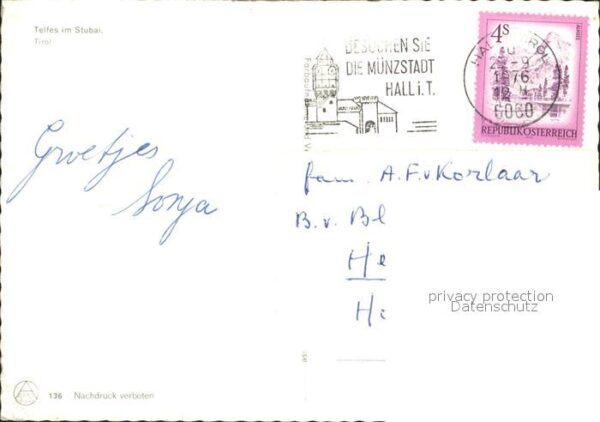 Telfes im Stubai,
Tirol
BESUCHEN SIE
DIE MÜNZSTADT
HALL i. T.
4S
ALMSEE
6060
REPUBLIK ÖSTERREICH
Groetjes
Sonja
fam. A.F.v Korlaar
B. v. Bl
He
Hi
privacy protection
Datenschutz
136 Nachdruck verboten